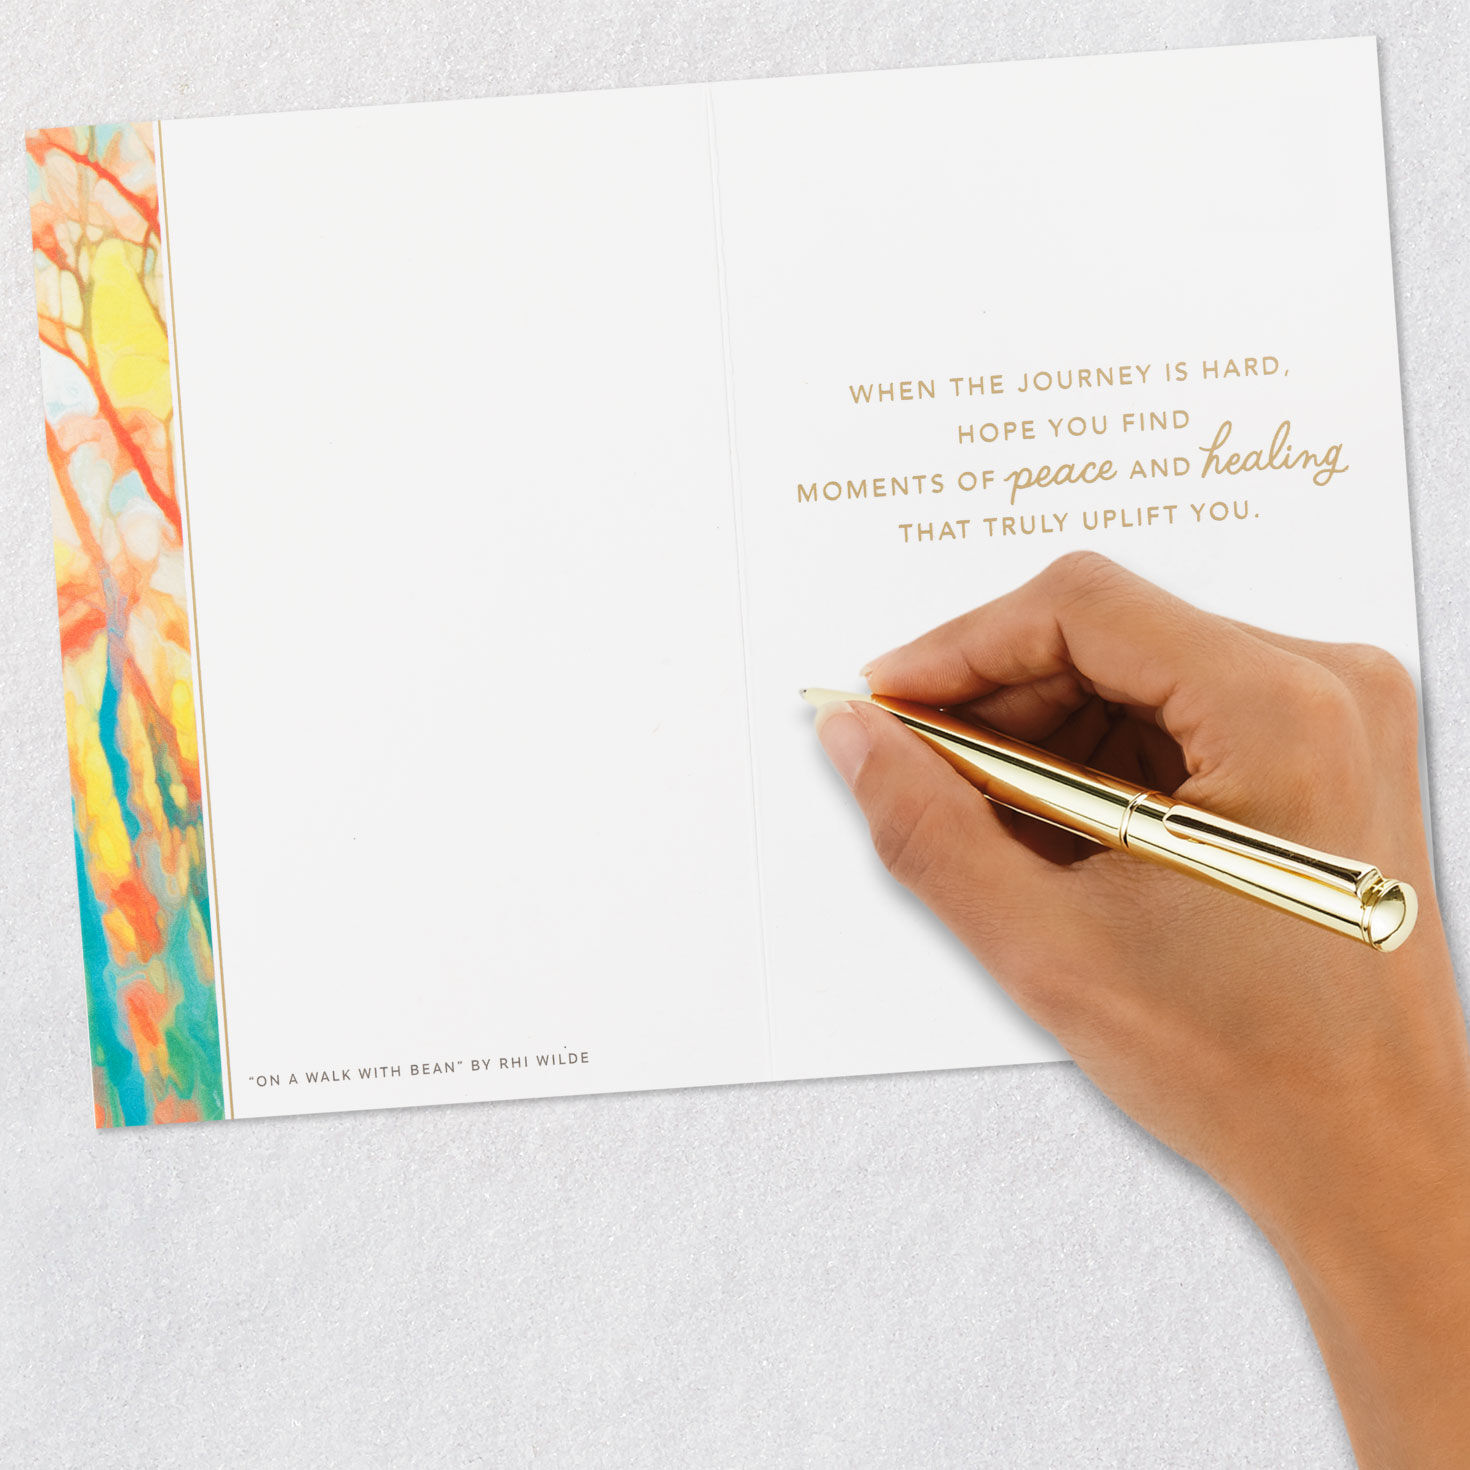 WHEN THE JOURNEY IS HARD,
HOPE YOU FIND
MOMENTS OF peace AND healing
THAT TRULY UPLIFT YOU.
“ON A WALK WITH BEAN” BY RHI WILDE